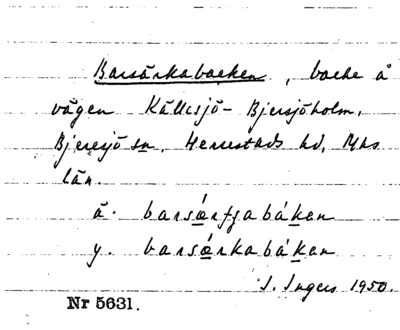 Barsärkabacken, backe å
vägen Källesjö - Bjersjöholm,
Bjeresjö sn. Herrestads hd, Mhs
län.
ä. barsǽrkabákan
y. barsǽrkabákan
I. Ingers 1950.
Nr 5631.